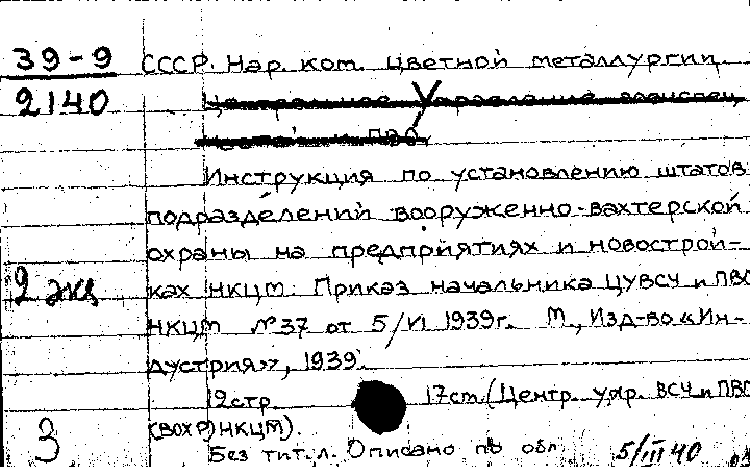 39-9 СССР. Нар. ком. цветной металлургии.
2140 Центральное Управление военспец
частей и ПВО
Инструкция по установлению штатов
подразделений вооруженно-вахтерской
охраны на предприятиях и новострой-
2 экз ках НКЦМ. Приказ начальника ЦУВСЧ и ПВО
НКЦМ №37 от 5/VI 1939г. М., Изд-во «Ин-
дустрия», 1939.
12стр. 17см. (Центр. упр. ВСЧ и ПВО
(ВОХР) НКЦМ).
3 Без тит. л. Описано по обл. 5/III 40